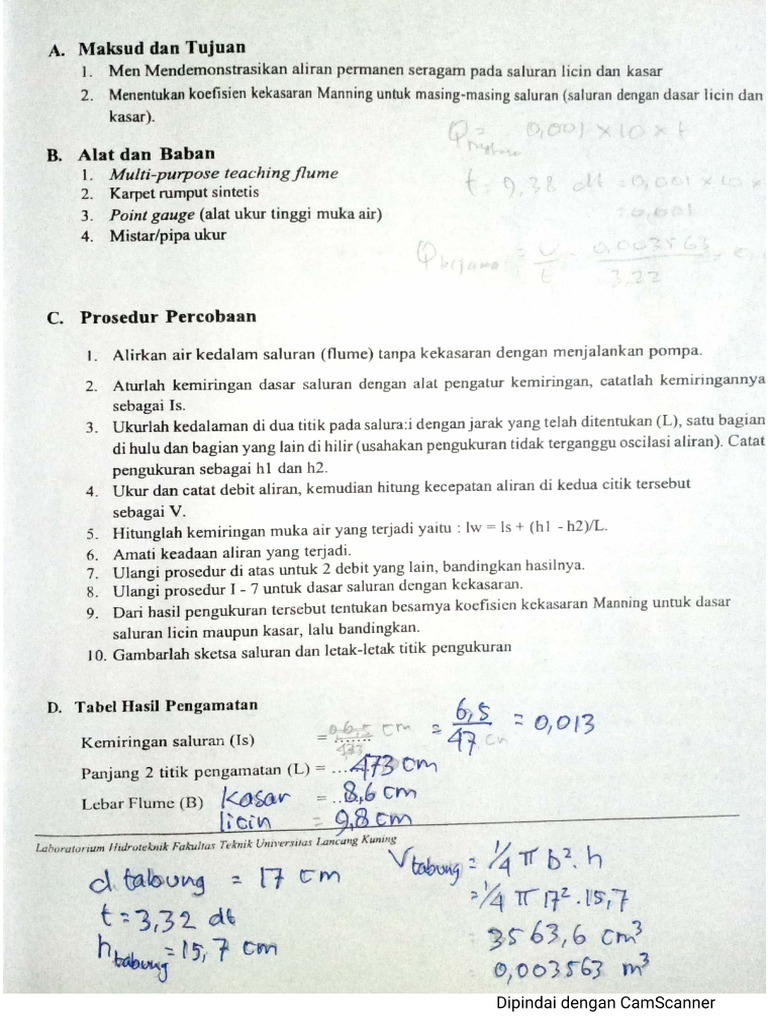 A. Maksud dan Tujuan
1. Men Mendemonstrasikan aliran permanen seragam pada saluran licin dan kasar
2. Menentukan koefisien kekasaran Manning untuk masing-masing saluran (saluran dengan dasar licin dan
kasar).
Q = 0,001 x 10 x t
B. Alat dan Baban
1. Multi-purpose teaching flume
2. Karpet rumput sintetis
t = 9,38 dt = 0,001 x 10 x
3. Point gauge (alat ukur tinggi muka air)
= 0,001
4. Mistar/pipa ukur
Q = V/t = 0,003563/3.22
C. Prosedur Percobaan
1. Alirkan air kedalam saluran (flume) tanpa kekasaran dengan menjalankan pompa.
2. Aturlah kemiringan dasar saluran dengan alat pengatur kemiringan, catatlah kemiringannya
sebagai Is.
3. Ukurlah kedalaman di dua titik pada salura:i dengan jarak yang telah ditentukan (L), satu bagian
di hulu dan bagian yang lain di hilir (usahakan pengukuran tidak terganggu oscilasi aliran). Catat
pengukuran sebagai h1 dan h2.
4. Ukur dan catat debit aliran, kemudian hitung kecepatan aliran di kedua citik tersebut
sebagai V.
5. Hitunglah kemiringan muka air yang terjadi yaitu : lw = ls + (h1 - h2)/L.
6. Amati keadaan aliran yang terjadi.
7. Ulangi prosedur di atas untuk 2 debit yang lain, bandingkan hasilnya.
8. Ulangi prosedur I - 7 untuk dasar saluran dengan kekasaran.
9. Dari hasil pengukuran tersebut tentukan besamya koefisien kekasaran Manning untuk dasar
saluran licin maupun kasar, lalu bandingkan.
10. Gambarlah sketsa saluran dan letak-letak titik pengukuran
D. Tabel Hasil Pengamatan
Kemiringan saluran (Is) = 6,5/473 cm = 6,5/47 cm = 0,013
Panjang 2 titik pengamatan (L) = ...473 cm
Lebar Flume (B) kasar = ..8,6 cm
licin = 9,8 cm
Laboratorium Hidroteknik Fakultas Teknik Universitas Lancang Kuning
d tabung = 17 cm
t = 3,32 dt
h tabung = 15,7 cm
V tabung = 1/4 π D². h
= 1/4 π 17². 15,7
= 3563,6 cm³
= 0,003563 m³
Dipindai dengan CamScanner